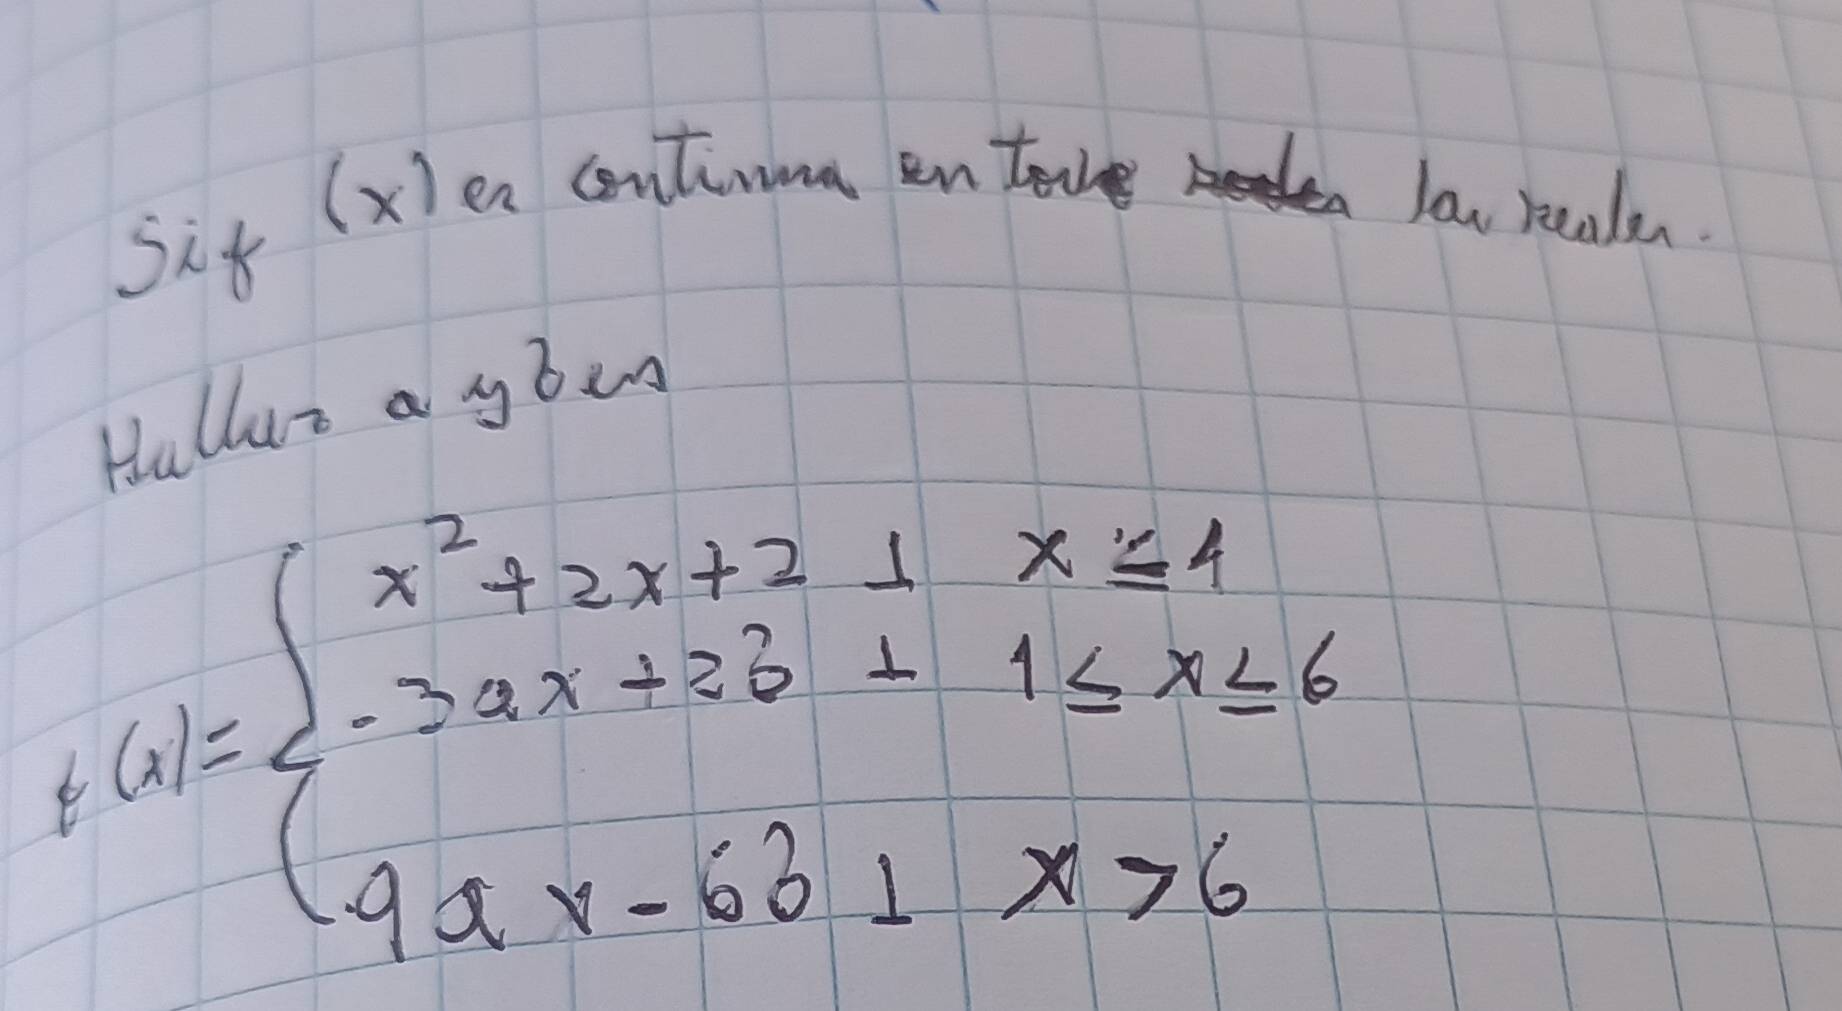 Si f(x) es continua en todos los reales.
Hallar a y b en
f(x) =
x² + 2x + 2 ⊥ x ≤ 1
-3ax + 2b ⊥ 1 ≤ x ≤ 6
9ax - 6b ⊥ x > 6